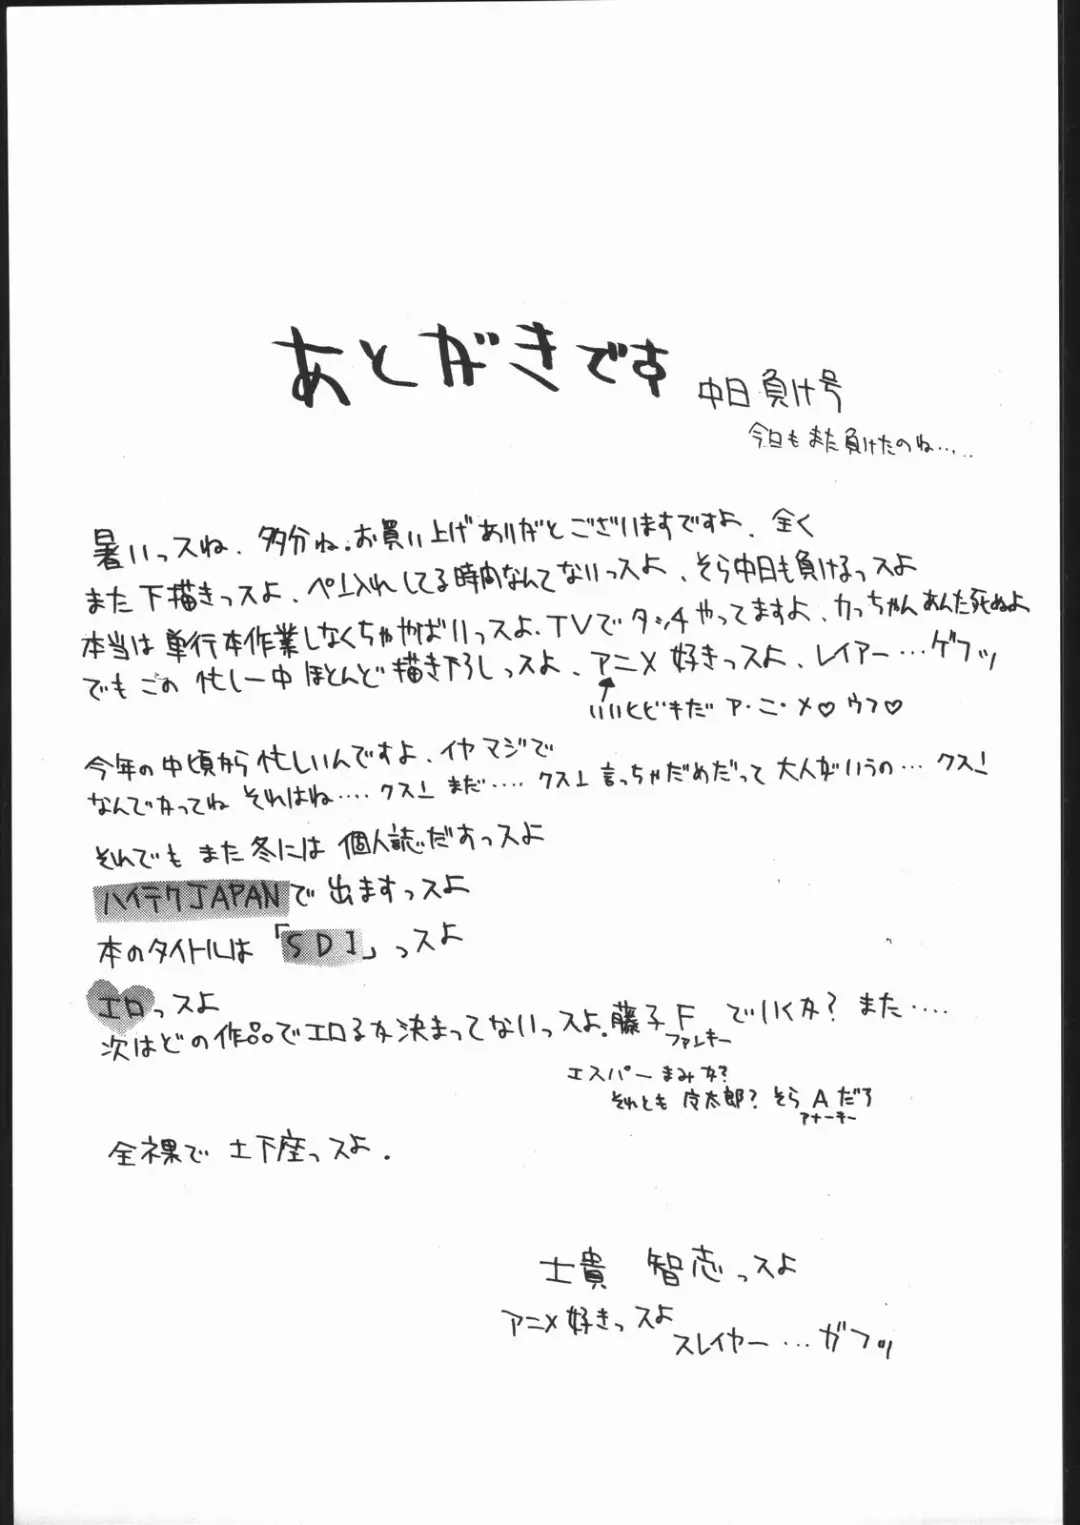 あとがきです
中日負け号
今日もまた負けたのね……
暑いっスね、多分ね。お買い上げありがとございますですよ、全く
また下描きっスよ、ペン入れしてる時間なんてないっスよ、そら中日も負けるっスよ
本当は単行本作業しなくちゃやばいっスよ、TVでタッチやってますよ、カっちゃんあんた死ぬよ
でもこの忙しい中ほとんど描き下ろしっスよ、アニメ好きっスよ、レイアー…ゲフッ
いいとどキだ ア・ニ・メ♡ウフ♡
今年の中頃から忙しいんですよ、イヤマジで
なんでかってね それはね…. クス! まだ….. クス! 言っちゃだめだって 大人がいうの… クス!
それでもまた冬には 個人誌だすっスよ
ハイテクJAPANで出ますっスよ
本のタイトルは「SDI」っスよ
エロっスよ
次はどの作品でエロるか決まってないっスよ.藤子Fでいくか?また‥‥
ファンキー
エスパーまみか?
それとも 太郎?そらAだろ
アナーキー
全裸で土下座っスよ.
士貴 智志っスよ
アニメ好きっスよ
スレイヤー…ガフッ